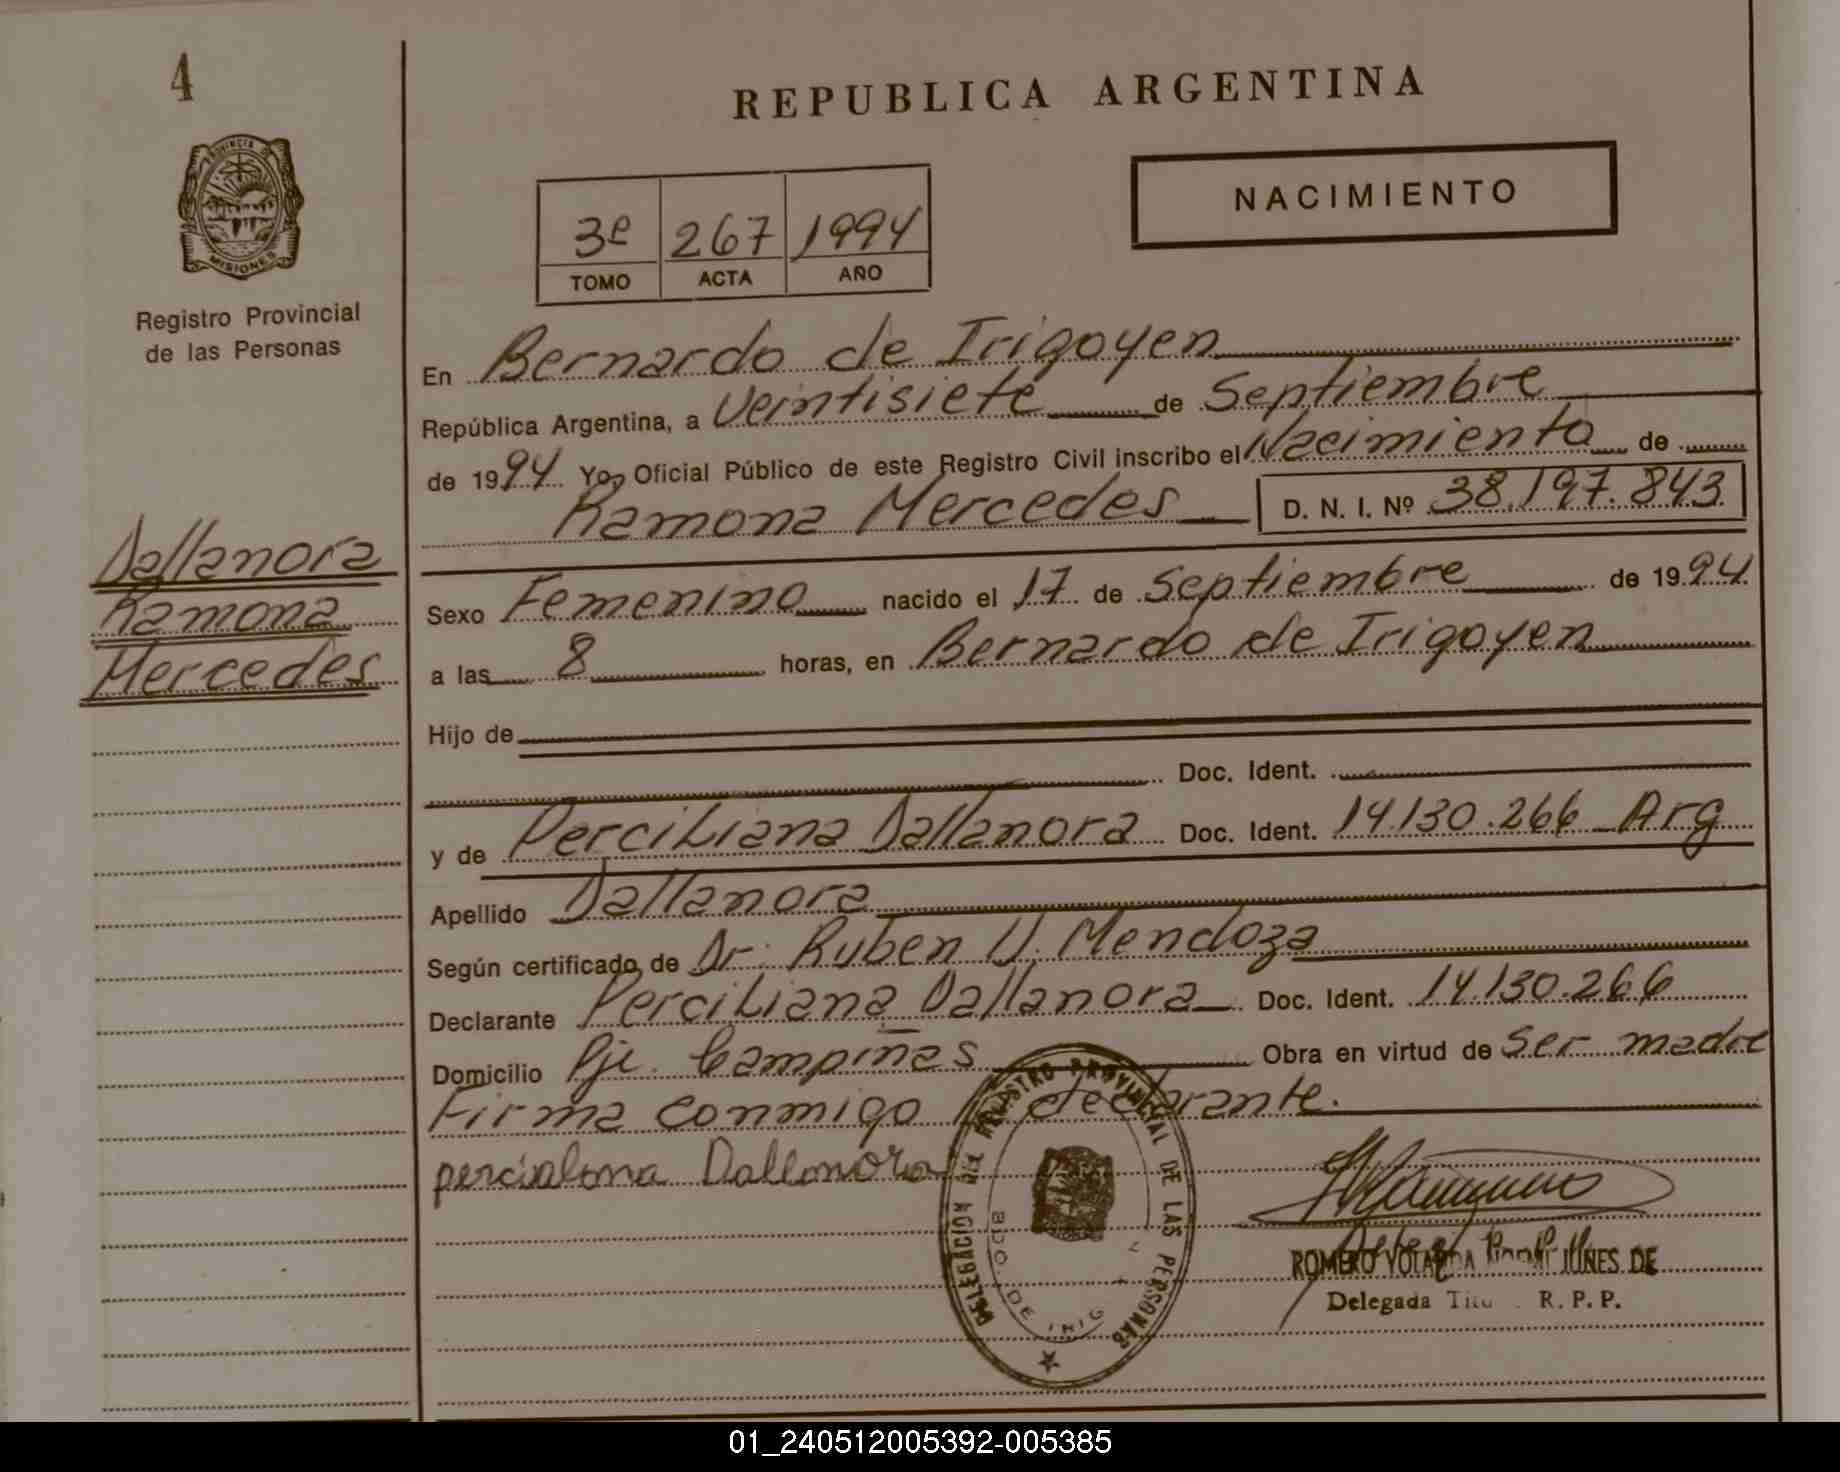 4
REPUBLICA ARGENTINA
PROVINCIA DE
MISIONES
Registro Provincial
de las Personas
NACIMIENTO
3º 267 1994
TOMO ACTA AÑO
En Bernardo de Irigoyen
República Argentina, a Veintisiete de Septiembre
de 1994 Yo, Oficial Público de este Registro Civil inscribo el Nacimiento de
Ramona Mercedes D. N. I. Nº 38.197.843
Dallanora
Ramona
Mercedes
Sexo Femenino nacido el 17 de Septiembre de 1994
a las 8 horas, en Bernardo de Irigoyen
Hijo de
Doc. Ident.
y de Perciliana Dallanora Doc. Ident. 14.130.266 Arg
Apellido Dallanora
Según certificado de Dr. Ruben U. Mendoza
Declarante Perciliana Dallanora Doc. Ident. 14.130.266
Domicilio Pje. Campinas Obra en virtud de ser madre
Firma conmigo declarante.
Dallanora
DELEGACION DEL REGISTRO PROVINCIAL DE LAS PERSONAS
BDO. DE IRIG
ROMERO YOLANDA DE
Delegada R. P. P.
01_240512005392-005385